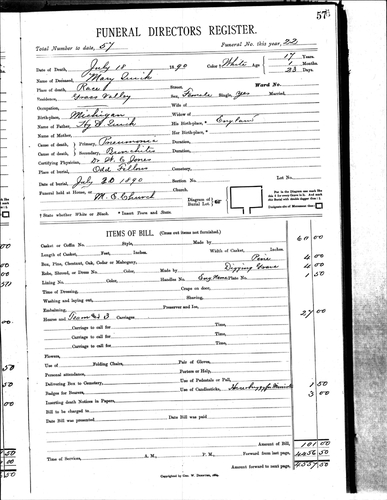 57
FUNERAL DIRECTORS REGISTER.
Total Number to date, 57 Funeral No. this year, 22
Date of Death, July 18 1890 Color* White Age 17 Years.
Name of Deceased, Mary Quick 1 Months
Place of death, Race† Street. 23 Days.
Residence, Grass Valley Ward No.
Occupation, Sex, Female Single, Yes Married,
Birthplace, Michigan Wife of
Name of Father, Hy A Quick Widow of
Name of Mother, His Birthplace,† England
Cause of death, Primary, Pneumonia Her Birthplace,†
Cause of death, Secondary, Bronchitis Duration,
Certifying Physician, Dr. W. C. Jones Duration,
Place of burial, Odd Fellows Cemetery,
Date of burial, July 20 1890 Section No. Lot No.
Funeral held at Home, or M. E. Church Church.
Diagram of Burial Lot
* State whether White or Black. † Insert Town and State.
ITEMS OF BILL. (Cross out items not furnished.)
Casket or Coffin No. Style, Made by 60 00
Length of Casket, Feet, Inches. Width of Casket, Inches.
Box, Pine, Chestnut, Oak, Cedar or Mahogany, Pine 4 00
Robe, Shroud, or Dress No. Color, Made by Digging Grave 4 00
Lining No. Color, Handles No. Plate No. 1 50
Time of Dressing, Crape on door,
Washing and laying out, Shaving,
Embalming, Preserver and Ice,
Hearse and Team 3 Carriages 27 00
Carriage to call for Time,
Carriage to call for Time,
Carriage to call for Time,
Carriage to call for Time,
Flowers,
Use of Folding Chairs, Pair of Gloves,
Personal attendance, Porters or Help,
Delivering Box to Cemetery, Use of Pedestals or Pall, 1 50
Badges for Bearers, Use of Candlesticks, 3 00
Inserting death Notices in Papers,
Bill to be charged to
Date Bill was presented Date Bill was paid
Amount of Bill, 101 00
Time of Services, A. M., P. M., Forward from last page, 4456 50
Amount forward to next page, 4557 50